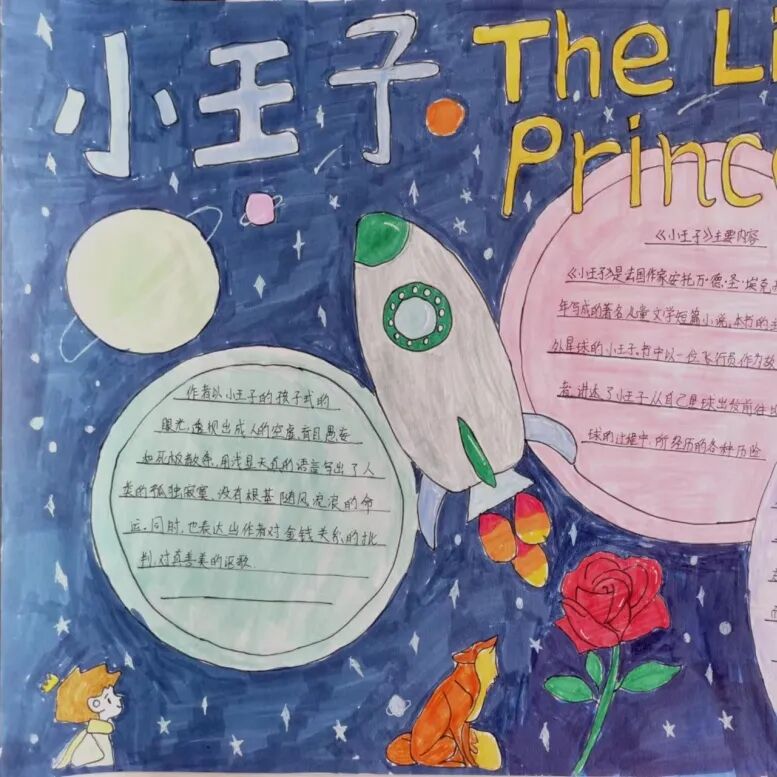 小王子
The Li
Princ
《小王子》主要内容
《小王子》是法国作家安托万·德·圣·埃克
年写成的著名儿童文学短篇小说,本书的主
外星球的小王子。书中以一位飞行员作为故
者,讲述了小王子从自己星球出发前往
球的过程中,所经历的各种历险
作者以小王子的孩子式的
眼光,透视出成人的空虚、盲目愚妄
和死板教条,用浅显天真的语言写出了人
类的孤独寂寞、没有根基随风流浪的命
运。同时,也表达出作者对金钱关系的批
判,对真善美的讴歌